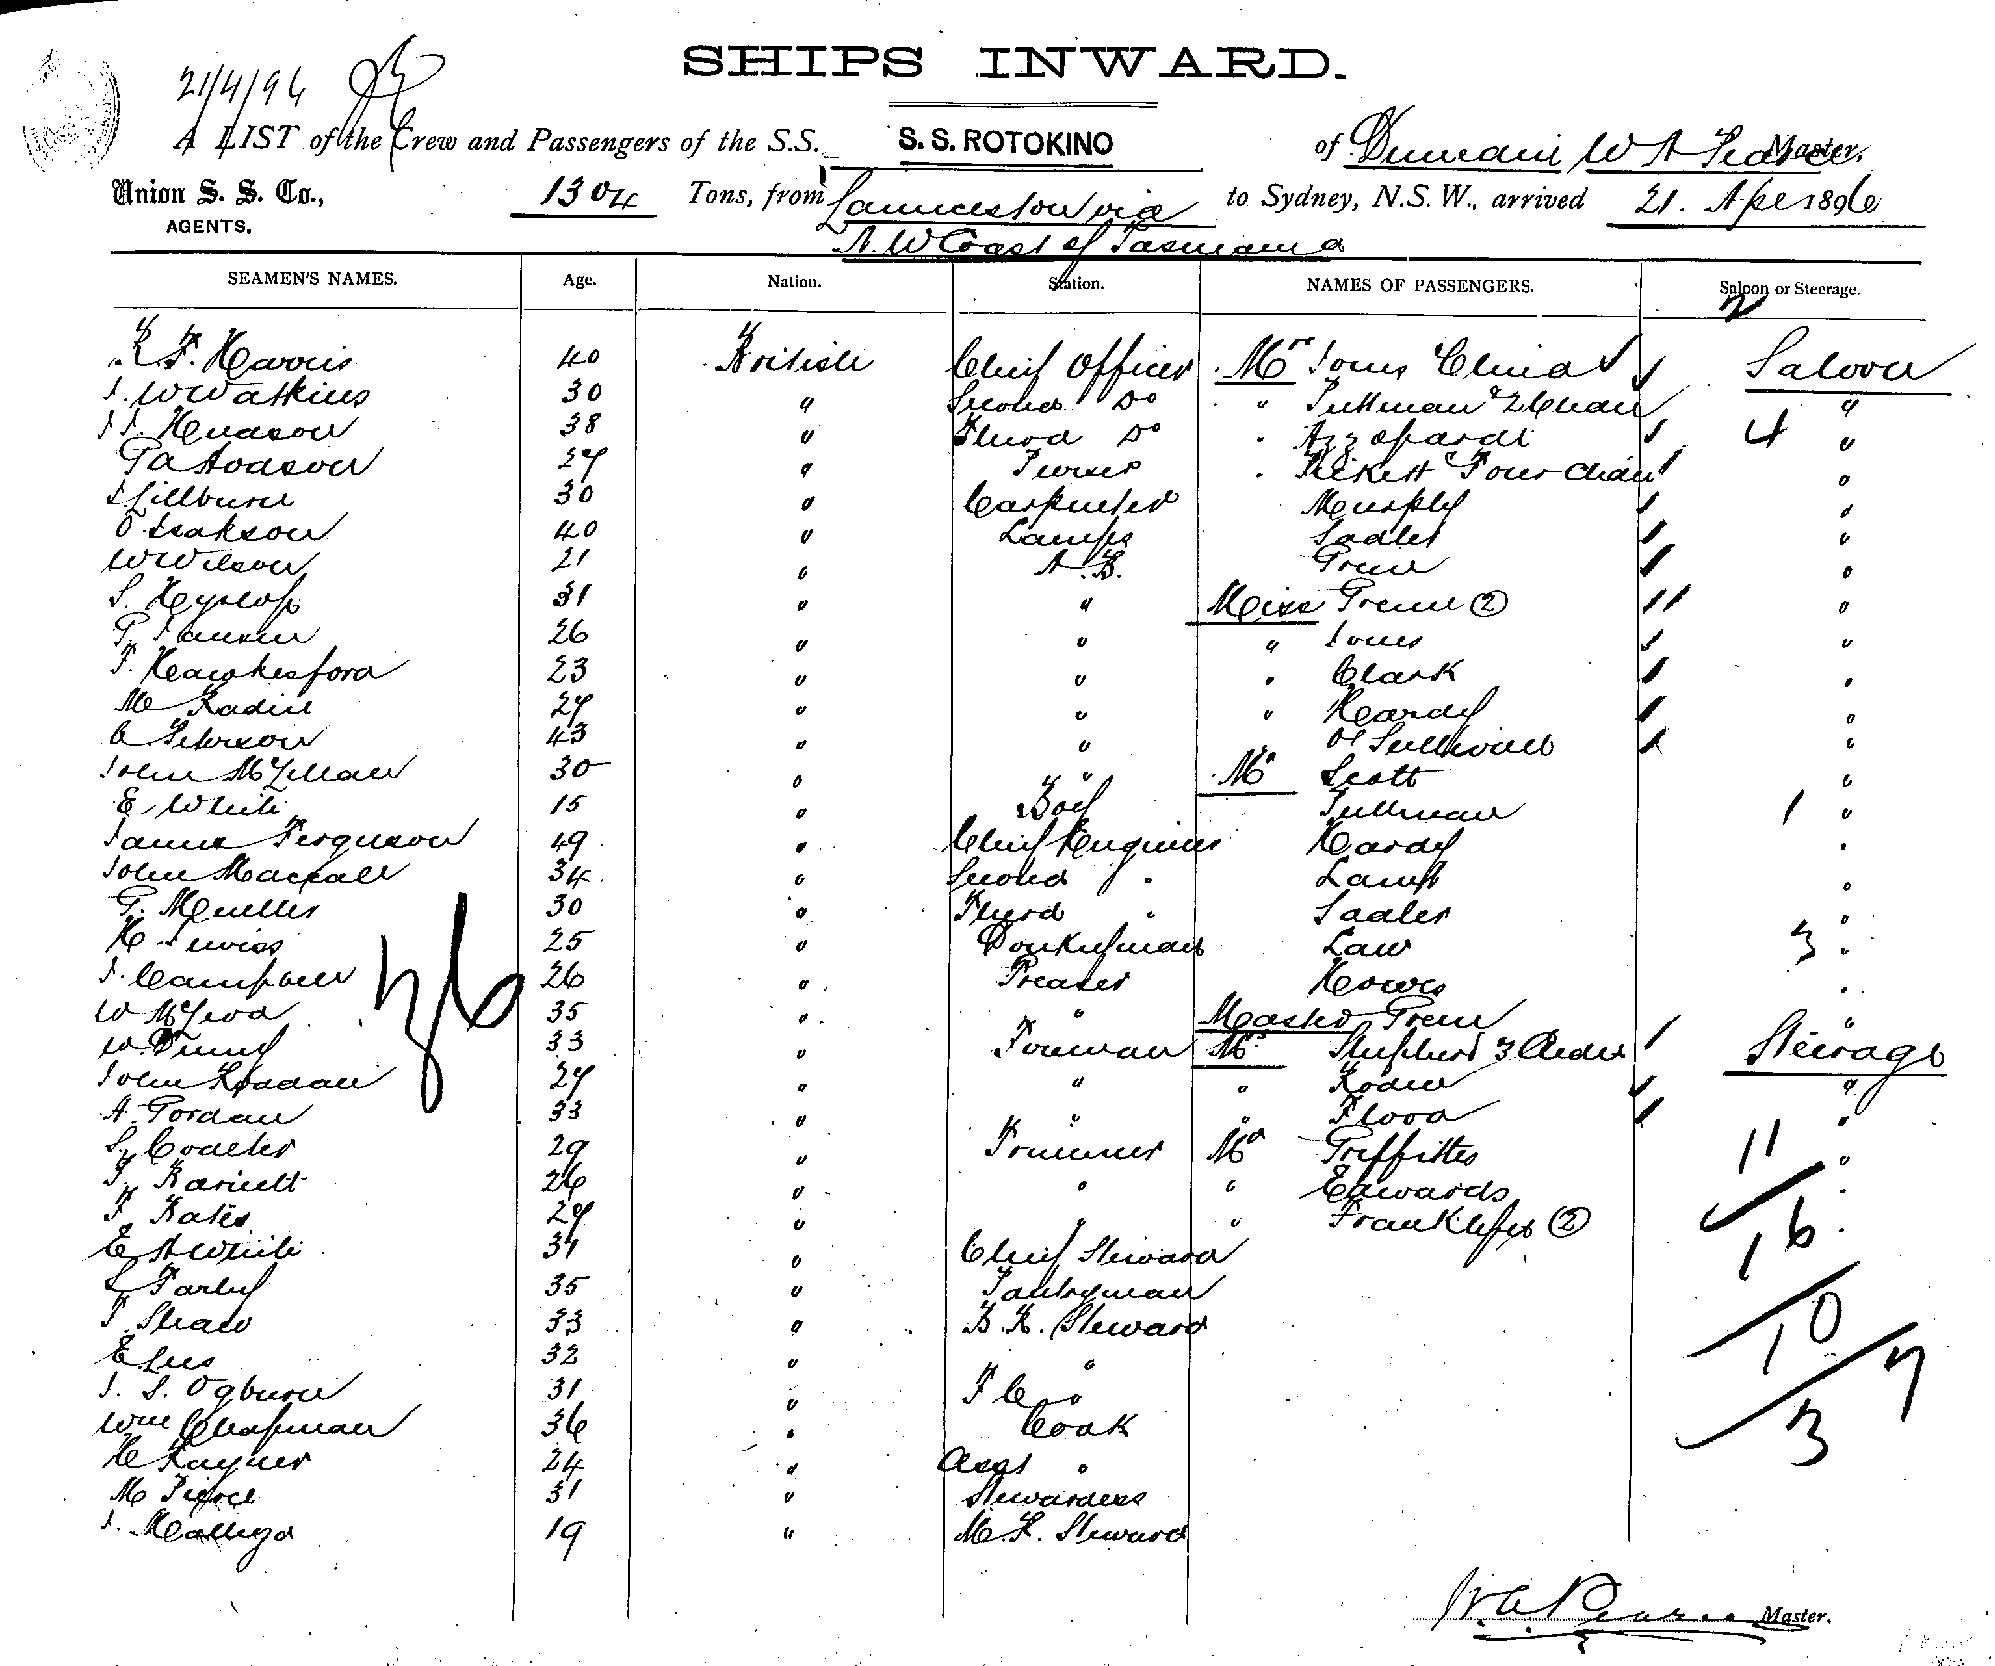 SHIPS INWARD.
21/4/96
A LIST of the Crew and Passengers of the S.S. S. S. ROTOKINO of Dunedin W A Pearce Master,
Union S. S. Co., 1304 Tons, from Launceston via to Sydney, N.S.W., arrived 21. Apl 1896
AGENTS.
N. W Coast of Tasmania
SEAMEN'S NAMES. Age. Nation. Station. NAMES OF PASSENGERS. Saloon or Steerage.
2
F. Harris 40 British Chief Officer Mrs Jones Child Saloon
J. W Watkins 30 " Second Do " Pullman 2 Chdn "
Hudson 38 " Third Do " Azzopardi 4 "
G A Hodson 27 " Purser " Pickett Four Chdn "
Lilburn 30 " Carpenter Murphy "
O Isakson 40 " Lamps Sadler "
W Wilson 21 " A. B. Green "
S. Heyslop 31 " " Miss Green 2 "
G. Hansen 26 " " " Jones "
F. Hawkesford 23 " " " Clark "
M Radin 27 " " " Hardy "
C Peterson 43 " " O'Sullivan "
John McLellan 30 " " Mr Scott "
E White 15 " Boy Pullman 1 "
James Ferguson 49 " Chief Engineer Hardy "
John Maccall 34 " Second " Lamb "
G. Mueller 30 " Third " Sadler "
H 25 " Donkeyman Law 3 "
J. Campbell 26 " Greaser Howes "
W McLeod 35 " " Master Green "
W. 33 " Fireman Mrs Shepherd 3 Chdn Steerage
John 27 " " " Roden "
A. Gordon 33 " " " Flood "
S. Coulter 29 " Trimmer Mr Griffiths 11 "
F. Barnett 26 " " " Edwards "
F Bates 27 " " " 2
16
E A White 31 " Chief Steward
L Farley 35 " Pantryman
F. Shaw 33 " B. R. Steward
10
E Lees 32 " "
7
J. S. Ogburn 31 " F C "
Wm Chapman 36 " Cook
3
H Rayner 24 " Asst "
M Pierce 31 " Stewardess
J. 19 " M. R. Steward
36
W. A. Pearce Master.